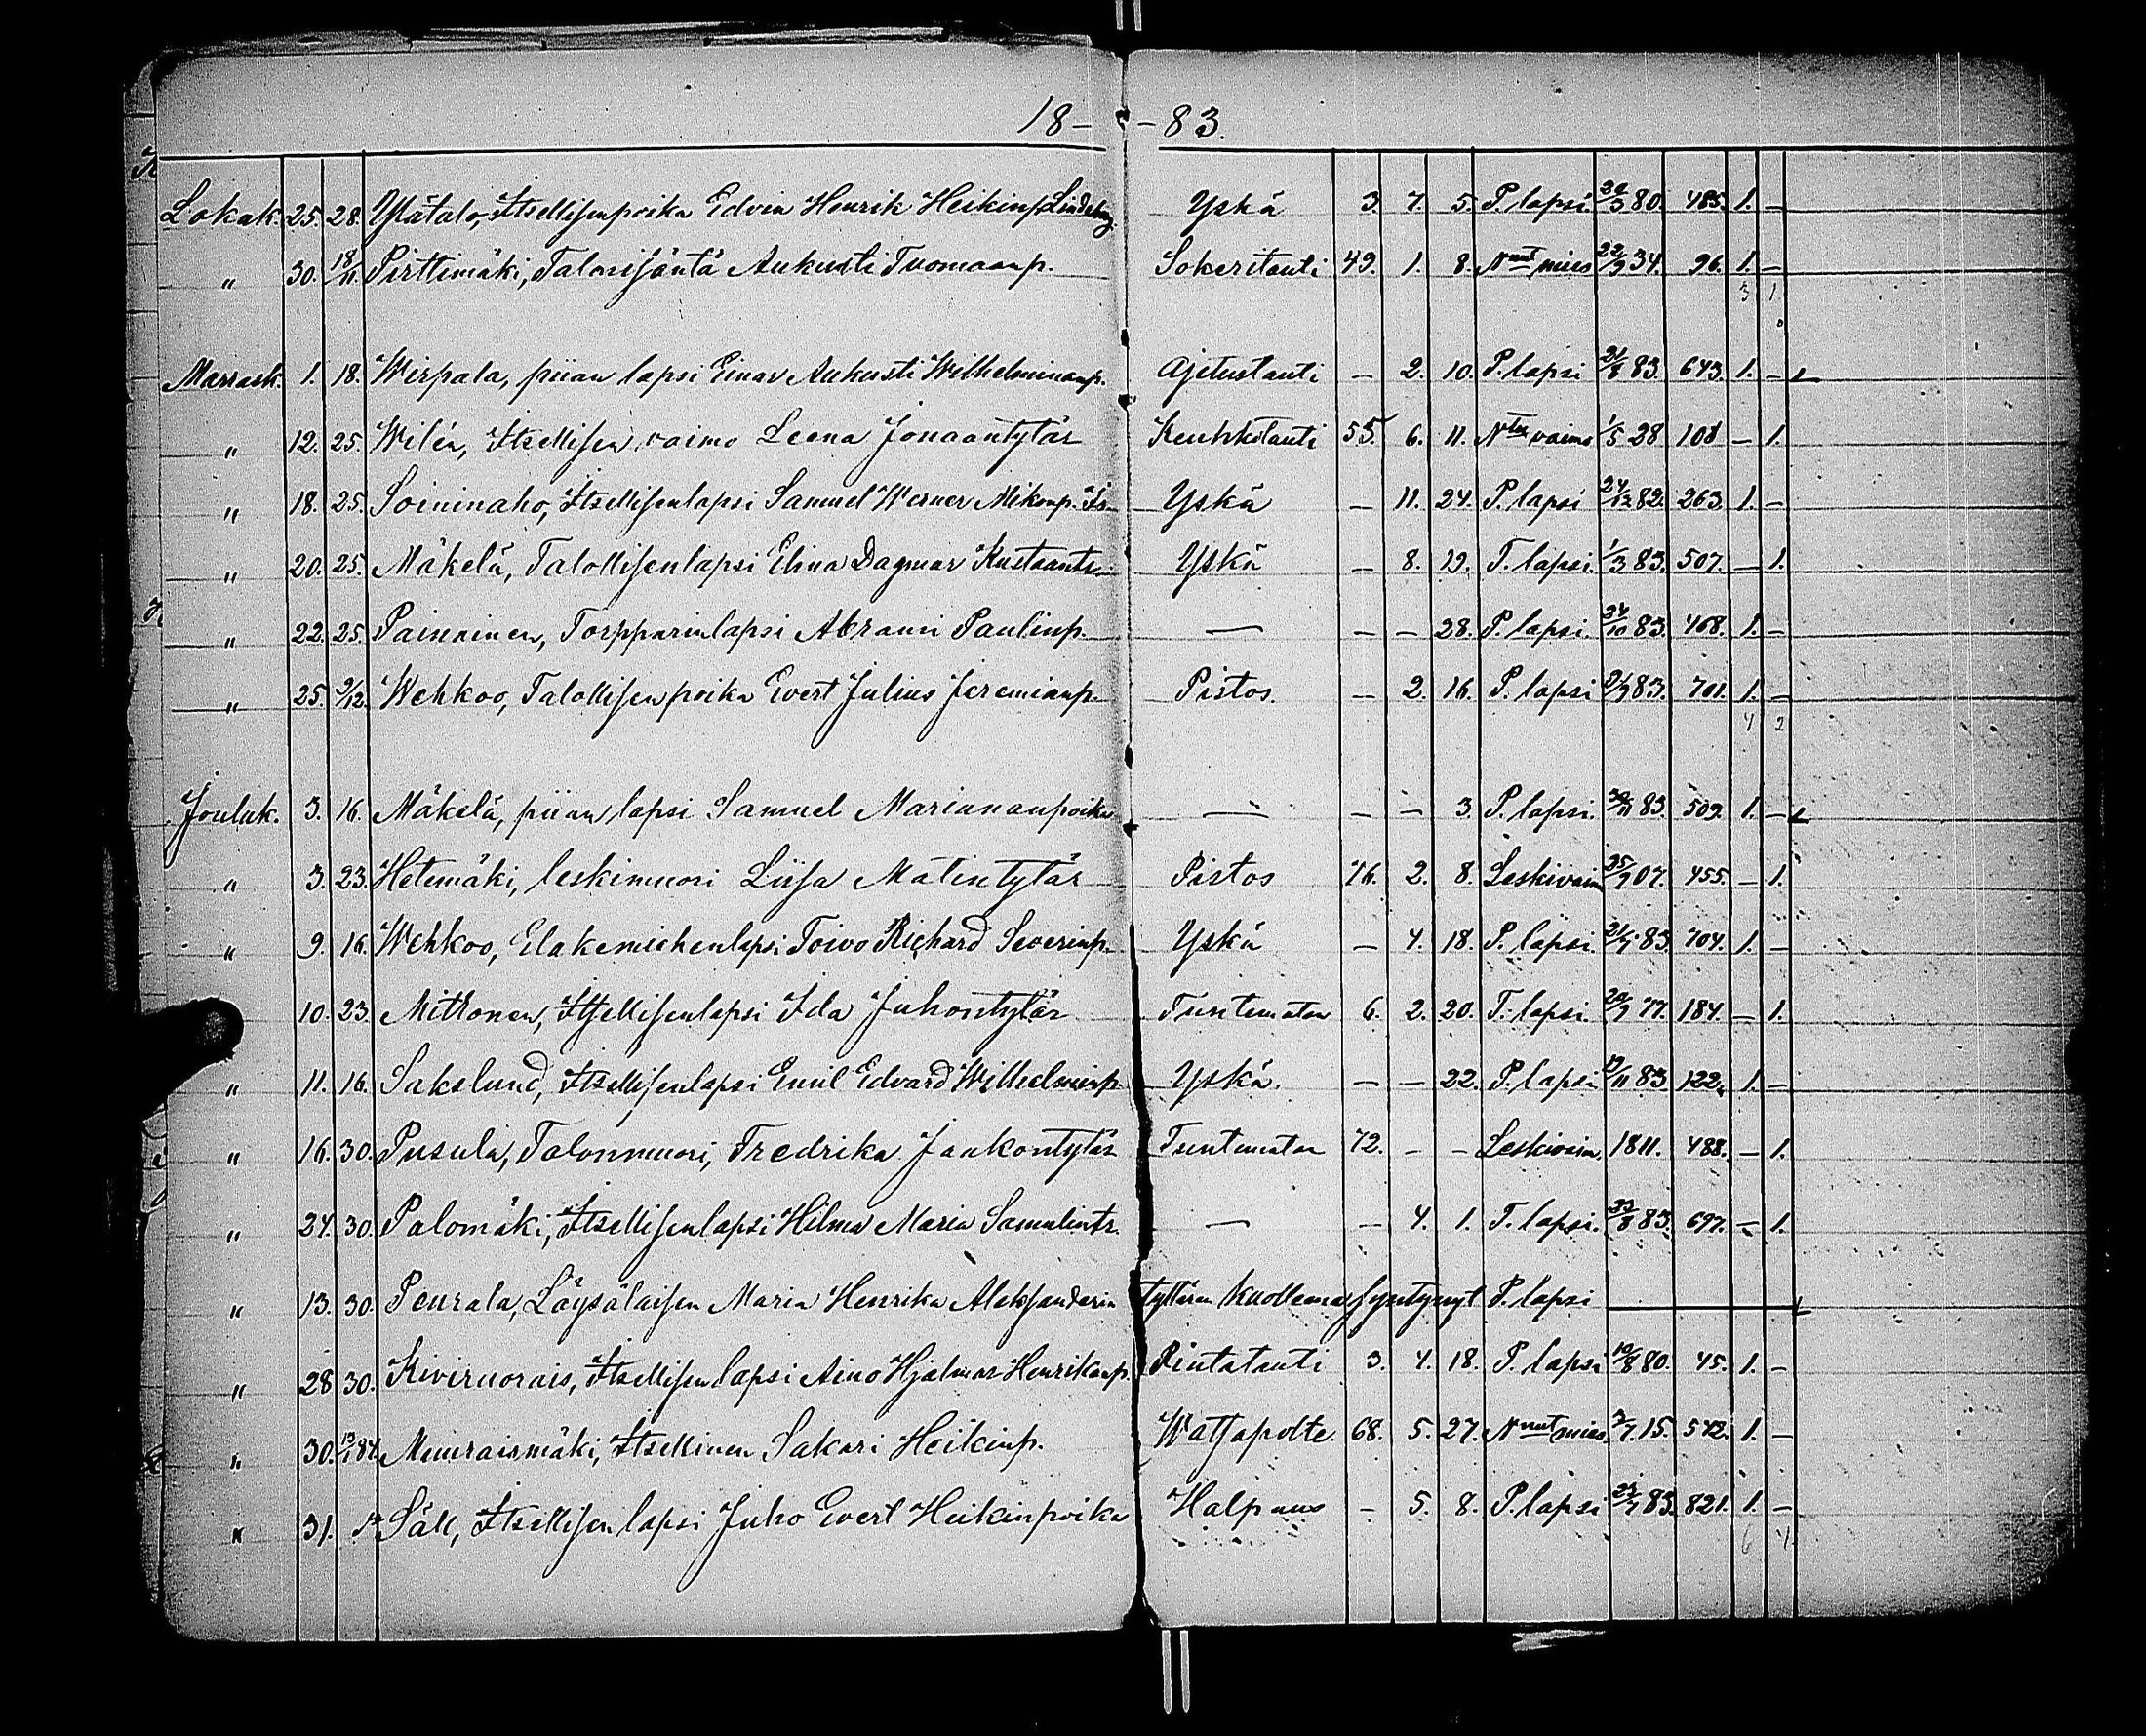 18 - - 83.
Lokak. 25. 28. Ylätalo, Itsellisenpoika Edvin Henrik Heikinp. Lindeberg. Yskä 3. 7. 5. P. lapsi. 20/3 80. 485. 1. -
" 30. 18/11. Pirttimäki, Talonisäntä Aukusti Tuomaanp. Sokeritauti 49. 1. 8. Nnut mies 22/9 34. 96. 1. -
3 1.
Marrask. 1. 18. Wirpala, piian lapsi Einar Aukusti Wilhelminanp. Ajetustauti - 2. 10. P. lapsi 21/8 83. 643. 1. -
" 12. 25. Wilén, Itsellisen vaimo Leena Jonaantytär Keuhkotauti 55. 6. 11. Ntu vaimo 1/5 28 108 - 1.
" 18. 25. Soininaho, Itsellisenlapsi Samuel Werner Mikonp. Yskä - 11. 24. P. lapsi 24/12 82. 263. 1. -
" 20. 25. Mäkelä, Talollisenlapsi Elina Dagmar Kustaantr. Yskä - 8. 19. T. lapsi. 1/3 83. 507. - 1.
" 22. 25. Painainen, Torpparinlapsi Abrami Paulinp. — - - 28. P. lapsi. 24/10 83. 468. 1. -
" 25. 9/12. Wehkoo, Talollisenpoika Evert Julius Jeremianp. Pistos. - 2. 16. P. lapsi 9/9 83. 701. 1. -
4 2
Jouluk. 3. 16. Mäkelä, piian lapsi Samuel Mariananpoika — - - 3. P. lapsi. 30/11 83. 509. 1. -
" 3. 23. Hetemäki, leskimuori Liisa Matintytär Pistos 76. 2. 8. Leskivaim 25/9 07. 455. - 1.
" 9. 16. Wehkoo, Eläkemiehenlapsi Toivo Richard Severinp. Yskä - 4. 18. P. lapsi. 21/7 83. 704. 1. -
" 10. 23. Mitronen, Itsellisenlapsi Ida Juhontytär Tuntematon 6. 2. 20. T. lapsi. 20/9 77. 184. - 1.
" 11. 16. Sakslund, Itsellisenlapsi Emil Edvard Wilhelminp. Yskä. - - 22. P. lapsi 19/11 83 122. 1. -
" 16. 30. Pusula, Talonmuori, Fredrika Jaakontytär Tuntematon 72. - - Leskivaim. 1811. 488. - 1.
" 24. 30. Palomäki, Itsellisenlapsi Hilma Maria Samulintr. — - 4. 1. T. lapsi. 23/8 83. 697. - 1.
" 13. 30. Peurala, Löysäläisen Maria Henrika Aleksanderin tyttären kuollena syntynyt P. lapsi
" 28 30. Kiviruorais, Itsellisenlapsi Aino Hjalmar Henrikanp. Rintatauti 3. 4. 18. P. lapsi 10/8 80. 45. 1. -
" 30. 13/1 84. Meuraismäki, Itsellinen Sakari Heikinp. Watsapolte. 68. 5. 27. Nnut mies. 3/7 15. 542. 1. -
" 31. Säll, Itsellisen lapsi Juho Evert Heikinpoika Halpaus - 5. 8. P. lapsi 23/7 83. 821. 1. -
6 4.